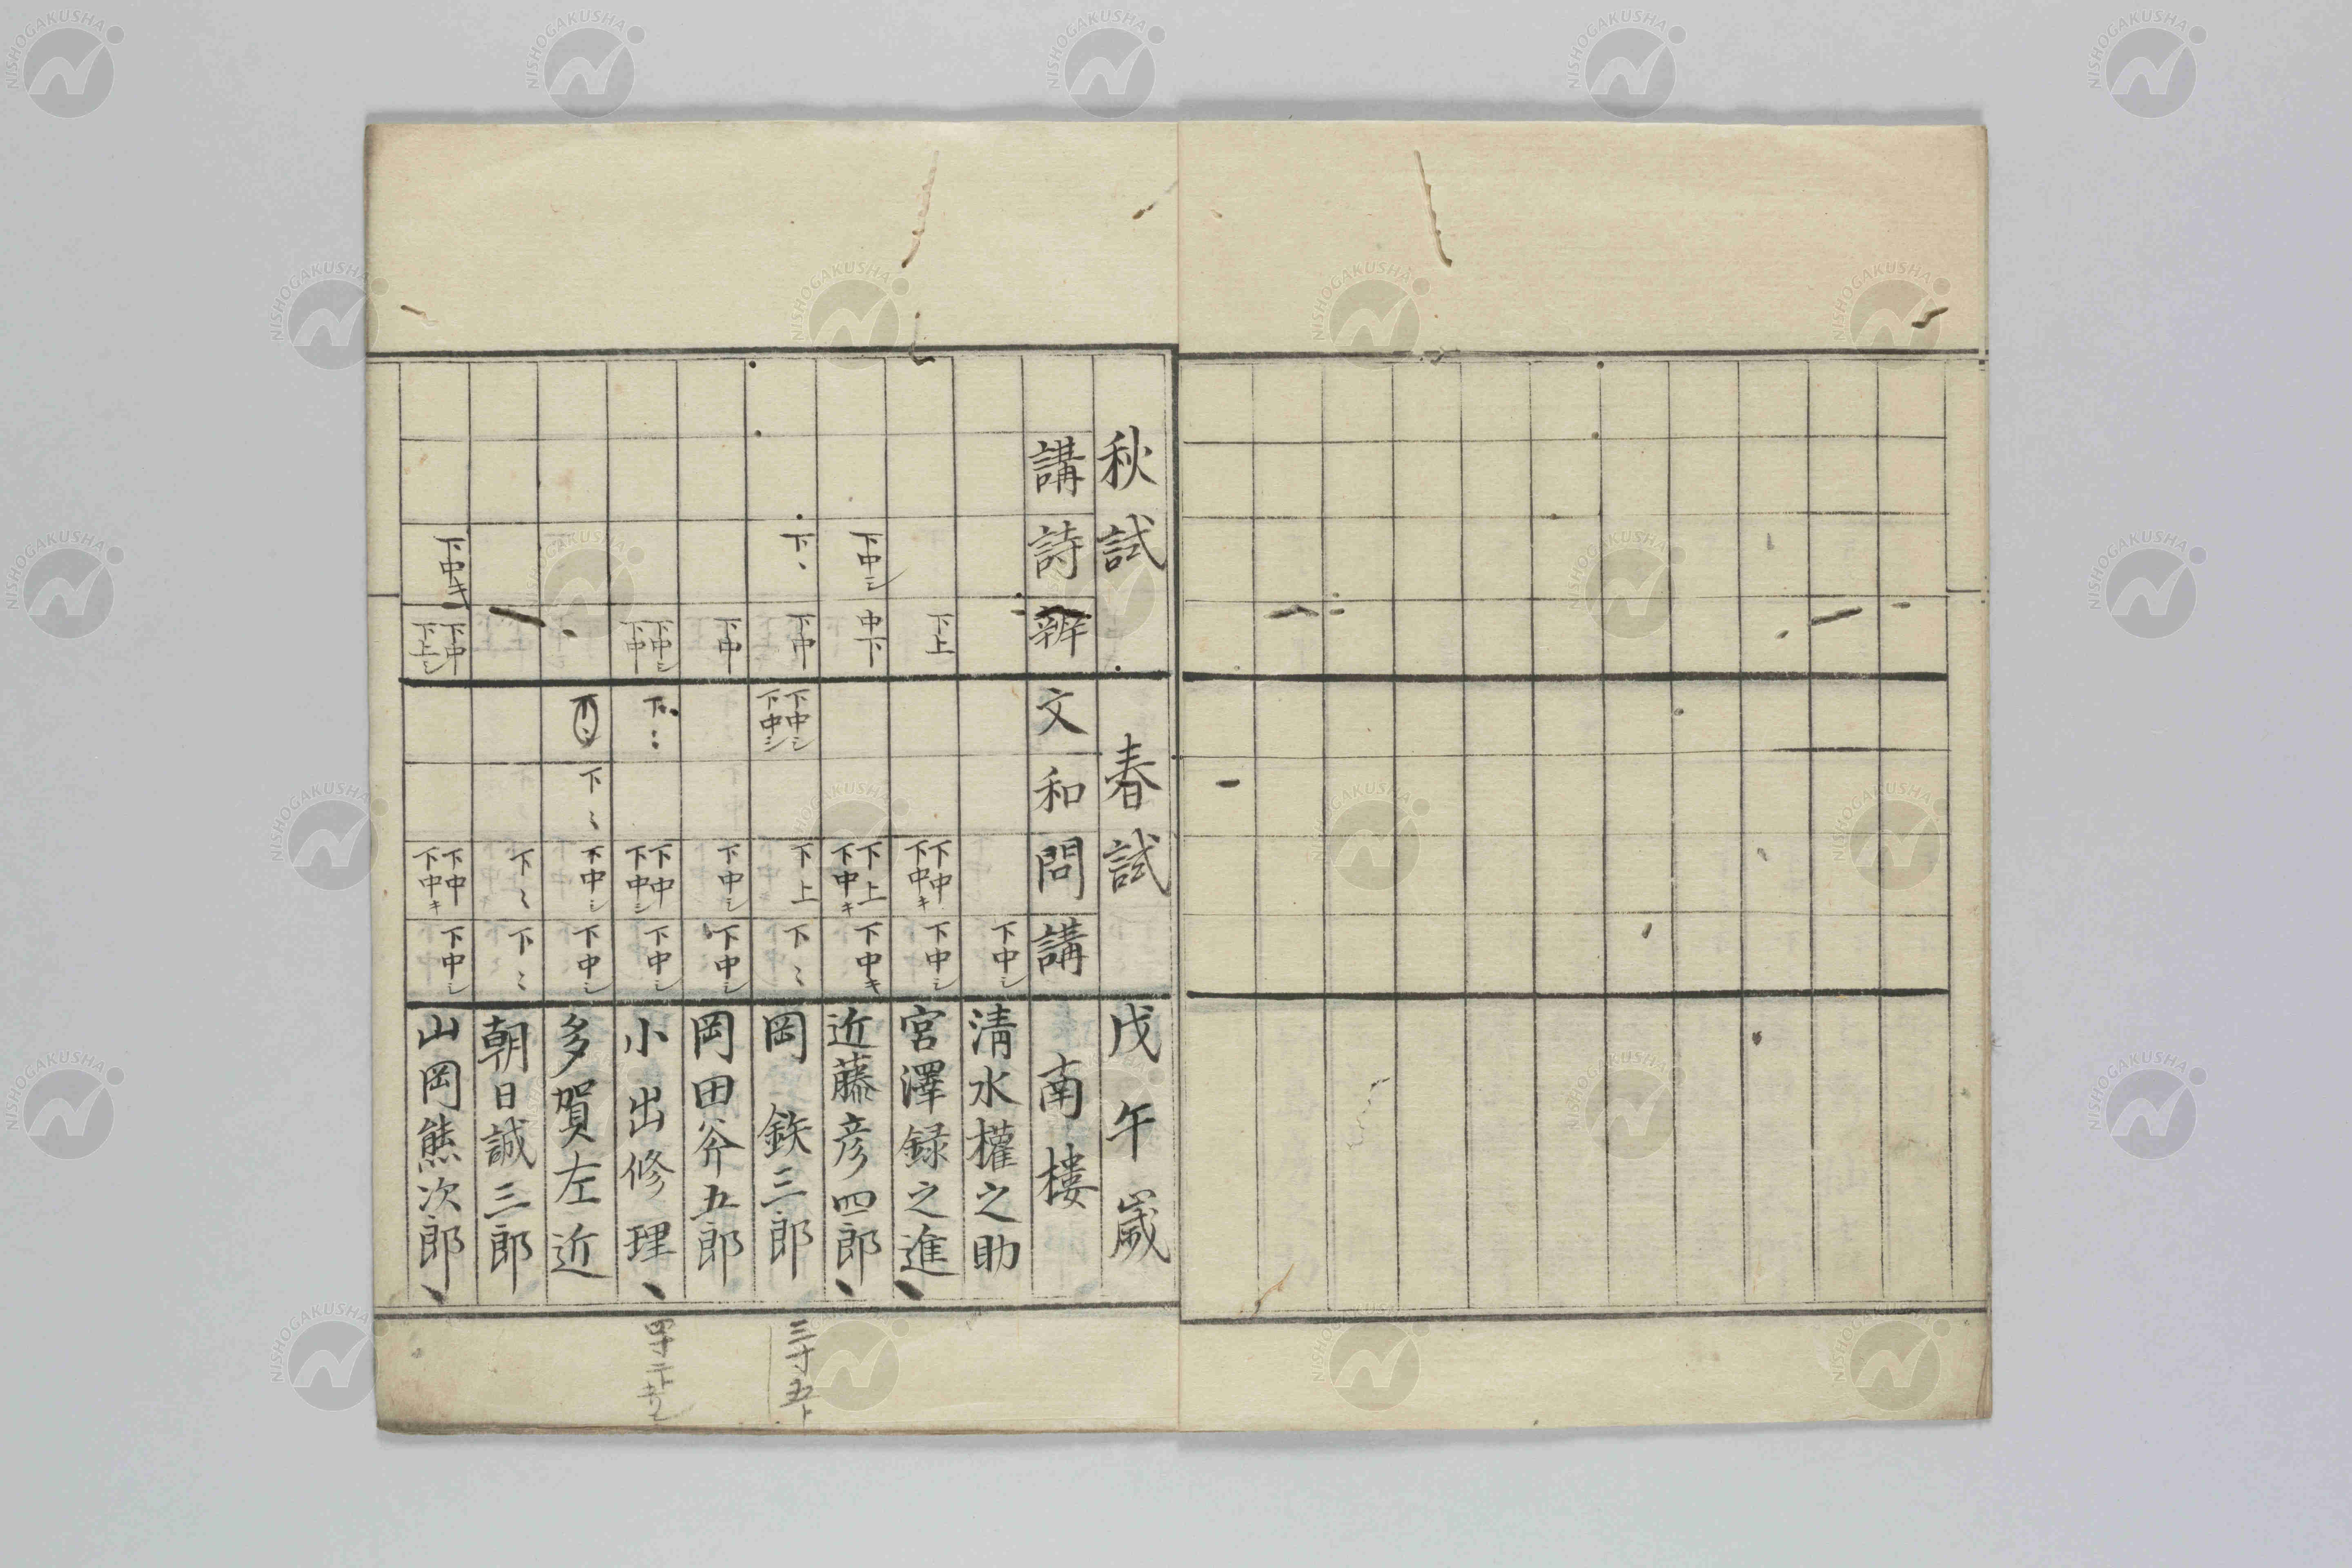 秋試 春試 戊午歳
講 詩 辨 文 和 問 講 南樓
下中シ 清水權之助
下上 下中 下中キ 下中シ 宮澤録之進、
下中シ 中下 下上 下中キ 下中キ 近藤彦四郎、
下、 下中 下中シ 下中シ 下上 下〻 岡 鉄三郎
下中 下中シ 下中シ 岡田斧五郎
下中シ 下中 下中 下中シ 下中シ 小出修理、
下〻 下中シ 下中シ 多賀左近
下〻 下〻 朝日誠三郎
下中キ 下中 下上シ 下中 下中キ 下中シ 山岡熊次郎、
NISHOGAKUSHA